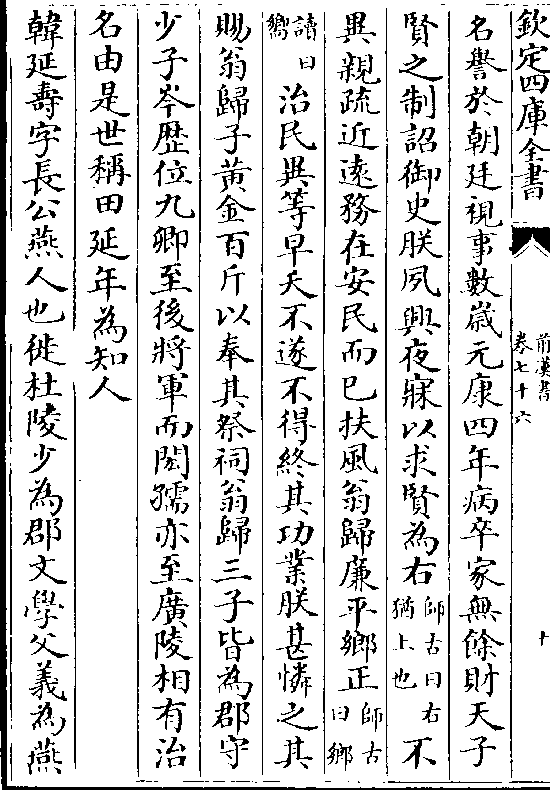 欽定四庫全書
前漢書
卷七十六
十
名譽於朝廷視事數歲元康四年病卒家無餘財天子
賢之制詔御史朕夙興夜寐以求賢為右師古曰右猶上也不
異親疏近遠務在安民而已扶風翁歸廉平鄉正師古曰鄉
讀曰嚮治民異等早夭不遂不得終其功業朕甚憐之其
賜翁歸子黃金百斤以奉其祭祠翁歸三子皆為郡守
少子岑歴位九卿至後將軍而閎孺亦至廣陵相有治
名由是世稱田延年為知人
韓延壽字長公燕人也徙杜陵少為郡文學父義為燕